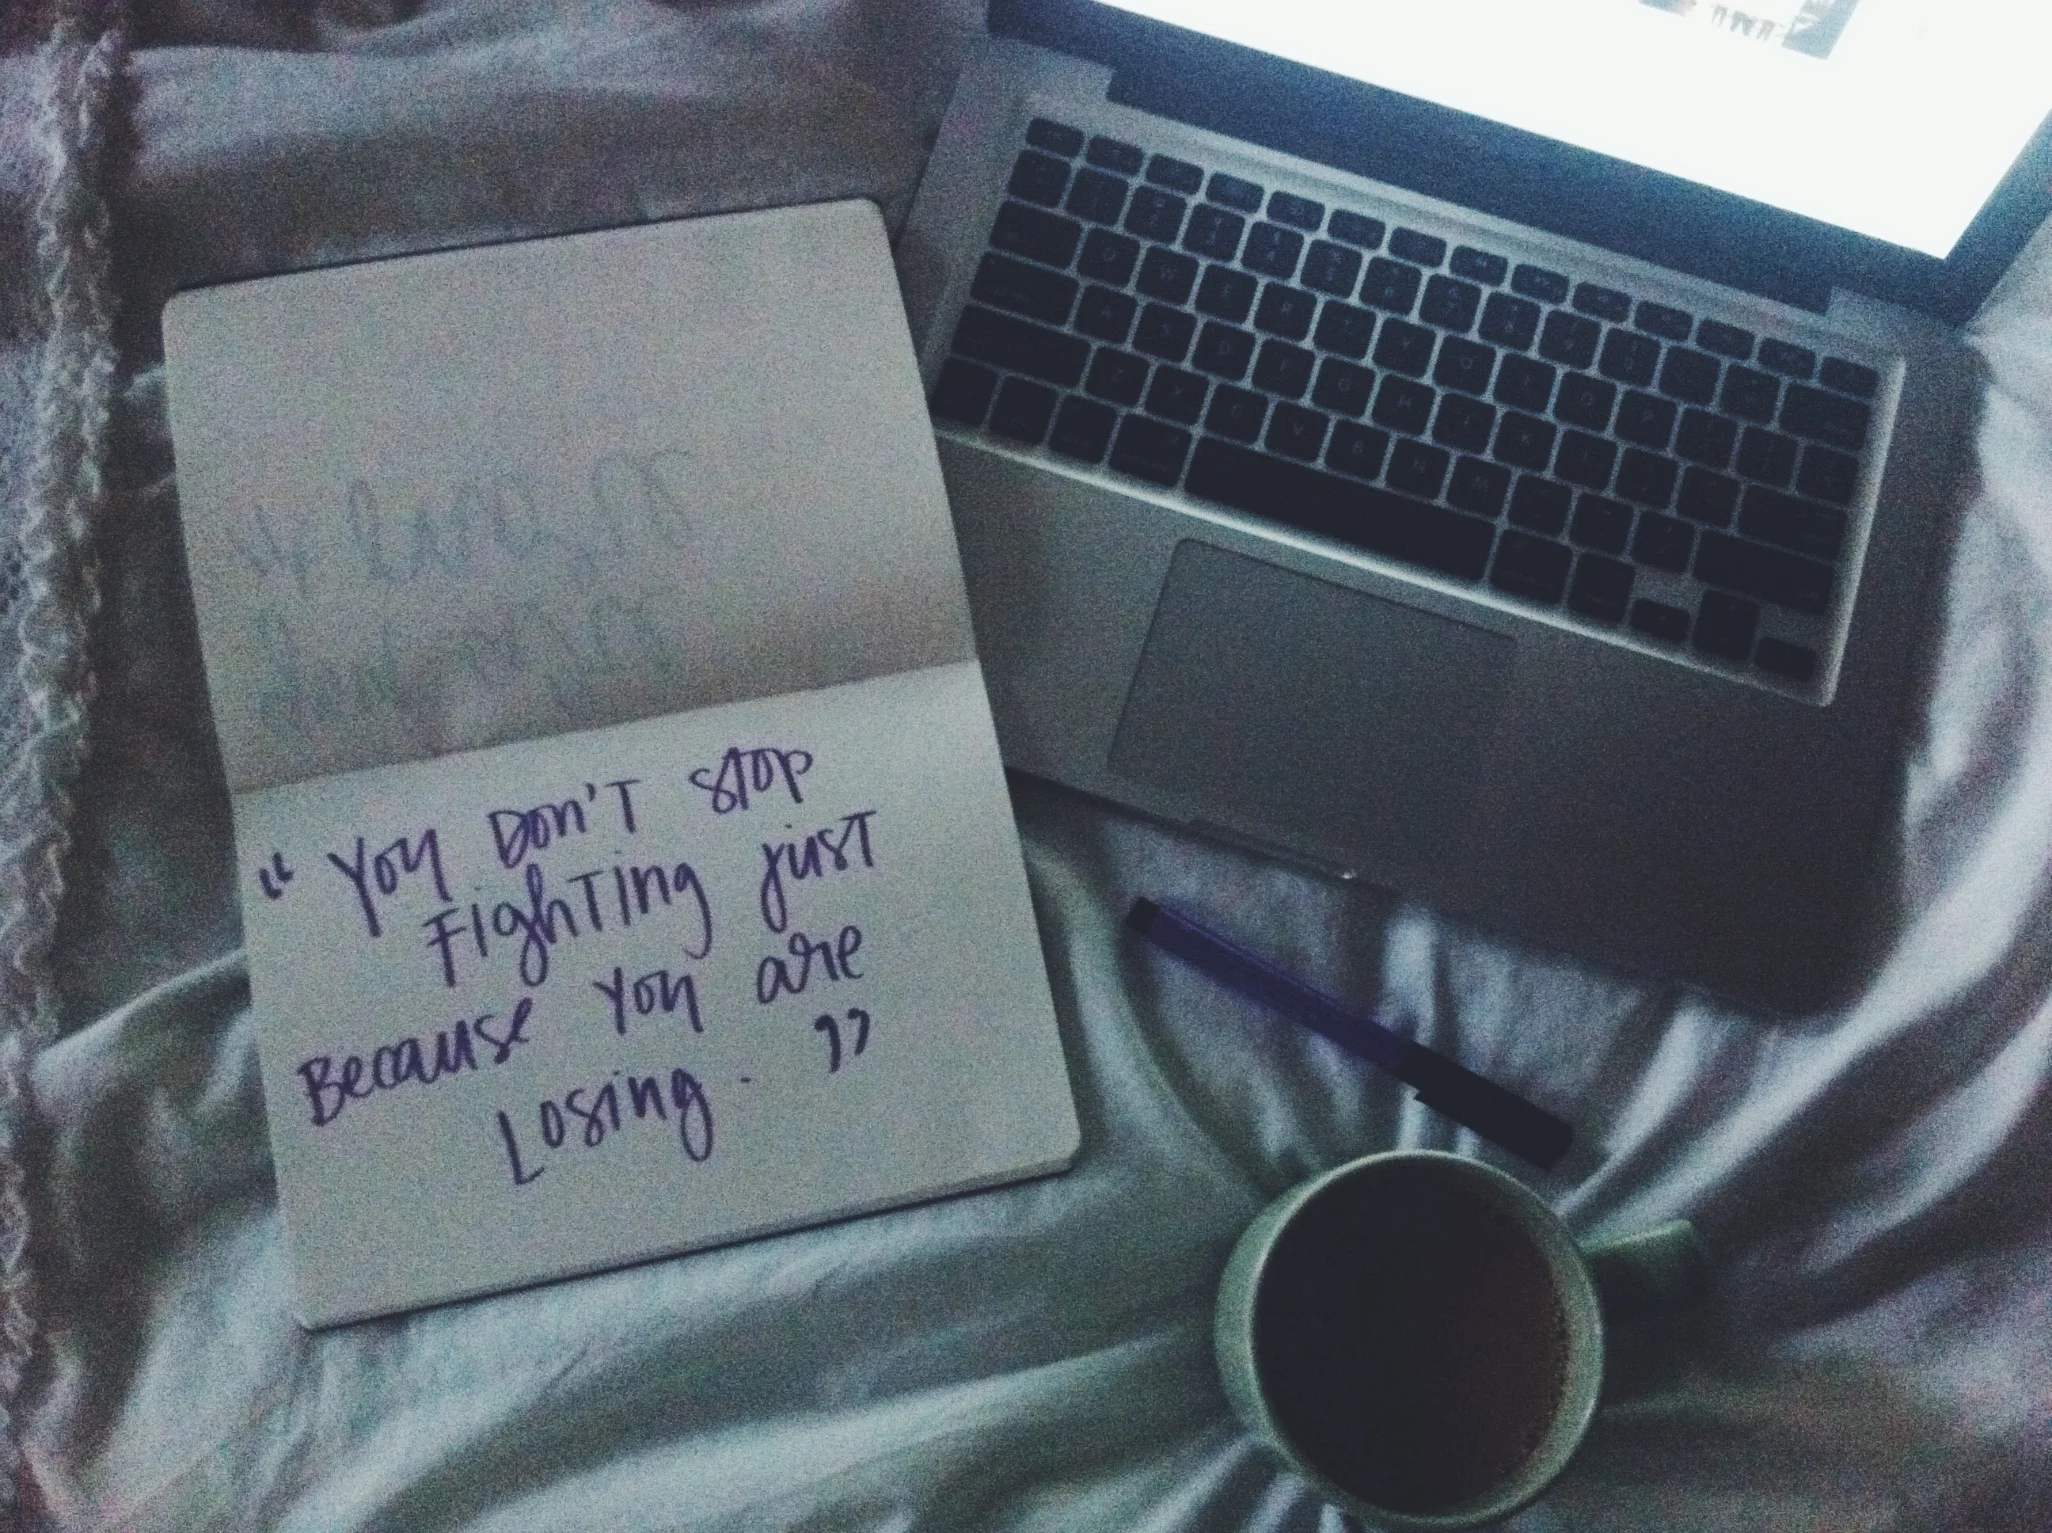 “ You Don't stop
Fighting just
Because you are
Losing. ”